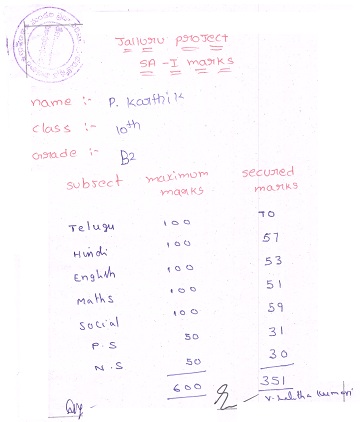 Jalluru project
SA - I marks
name :- P. Karthik
class :- 10th
Grade :- B2
subject maximum marks secured marks
Telugu 100 70
Hindi 100 57
English 100 53
Maths 100 51
Social 100 59
P.S 50 31
N.S 50 30
600 351
V. Lalitha Kumari